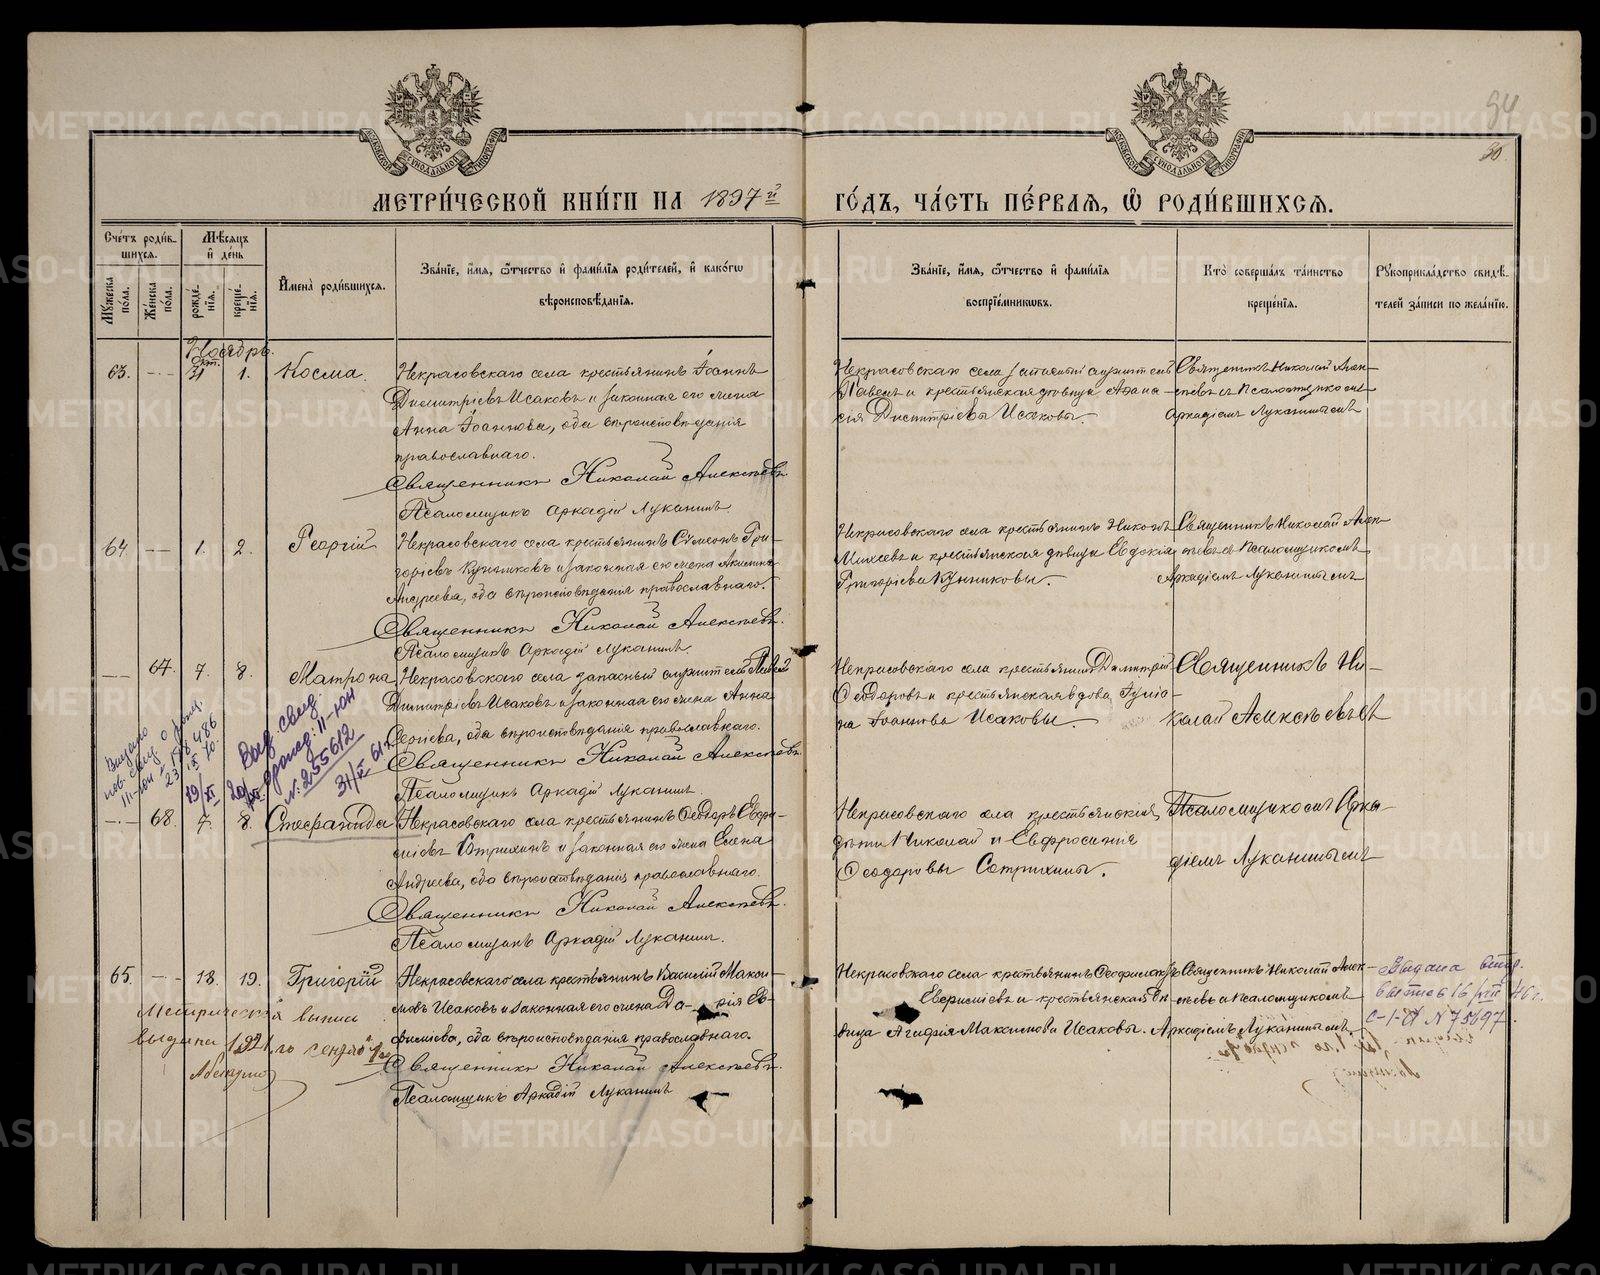 94
50.
МЕТРИ́ЧЕСКОЙ КНИ́ГИ НА 1897й
ГО́ДЪ, ЧА́СТЬ ПЕ́РВАѦ, Ѽ РОДИ́ВШИХСѦ.
Сче́тъ роди́в-
шихся.
Мужеска по́ла.
Же́нска по́ла.
Мѣ́сяцъ
и де́нь
рожде́нїя.
креще́нїя.
Имена̀ роди́вшихся.
Зва́нїе, и́мя, ѻ́тчество и фами́лїя роди́телей, и како́гѡ
вѣроисповѣ́данїя.
Зва́нїе, и́мя, ѻ́тчество и фами́лїя
воспрїе́мниковъ.
Кто̀ соверша́лъ та́инство
креще́нїя.
Рукоприкла́дство свидѣ́-
телей за́писи по жела́нїю.
Ноябрь.
63. Окт. 31 1. Косма.
Некрасовскаго села крестьянинъ Іоаннъ
Димитріевъ Исаковъ и законная его жена
Анна Іоаннова, оба вѣроисповѣданія
православнаго.
Священникъ Николай Алексѣевъ.
Псаломщикъ Аркадій Луканинъ
Некрасовскаго села запасный служитель
Павелъ и крестьянская дѣвица Афана-
сія Димитріевы Исаковы.
Священникъ Николай Алек-
сѣевъ съ Псаломщикомъ
Аркадіемъ Луканинымъ
64 1. 2. Георгій
Некрасовскаго села крестьянинъ Сѵмеонъ Гри-
горіевъ Кунниковъ и законная его жена Акилина
Андреева, оба вѣроисповѣданія православнаго.
Священникъ Николай Алексѣевъ.
Псаломщикъ Аркадій Луканинъ.
Некрасовскаго села крестьянинъ Никонъ
Михеевъ и крестьянская дѣвица Евдокія
Григоріева Кунниковы.
Священникъ Николай Алек-
сѣевъ съ Псаломщикомъ
Аркадіемъ Луканинымъ
67. 7. 8. Матрона
Некрасовскаго села запасный служитель Павелъ
Димитріевъ Исаковъ и законная его жена Анна
Сергіева, оба вѣроисповѣданія православнаго.
Священникъ Николай Алексѣевъ.
Псаломщикъ Аркадій Луканинъ.
Некрасовскаго села крестьянинъ Димитрій
Ѳеодоровъ и крестьянская вдова Іуліа-
на Іоаннова Исаковы.
Священникъ Ни-
колай Алексѣевъ
Выдано
пов. свид о рожд.
III-юн 488486
23/IX 70.
19/XI 20/XI
Выд. свид
о рожд: II-юн
№. 255612
31/X 61г.
68. 7. 8. Стефанида
Некрасовскаго села крестьянинъ Ѳеодоръ Евфи-
міевъ Сотрихинъ и законная его жена Елена
Андреева, оба вѣроисповѣданія православнаго.
Священникъ Николай Алексѣевъ.
Псаломщикъ Аркадій Луканинъ.
Некрасовскаго села крестьянскія
дѣти Николай и Евфросинія
Ѳеодоровы Сотрихины.
Псаломщикомъ Арка-
діемъ Луканинымъ
65. 18. 19. Григорій
Некрасовскаго села крестьянинъ Василій Макси-
мовъ Исаковъ и законная его жена Дарія Ев-
фиміева, оба вѣроисповѣданія православнаго.
Священникъ Николай Алексѣевъ.
Псаломщикъ Аркадій Луканинъ
Некрасовскаго села крестьянинъ Ѳеофилактъ
и крестьянская дѣ-
вица Агафія Максимова Исаковы.
Священникъ Николай Алек-
сѣевъ съ Псаломщикомъ
Аркадіемъ Луканинымъ.
Метрическая выпись
выдана 1921 го
Выдана
16/VII 46 г.
N 75697